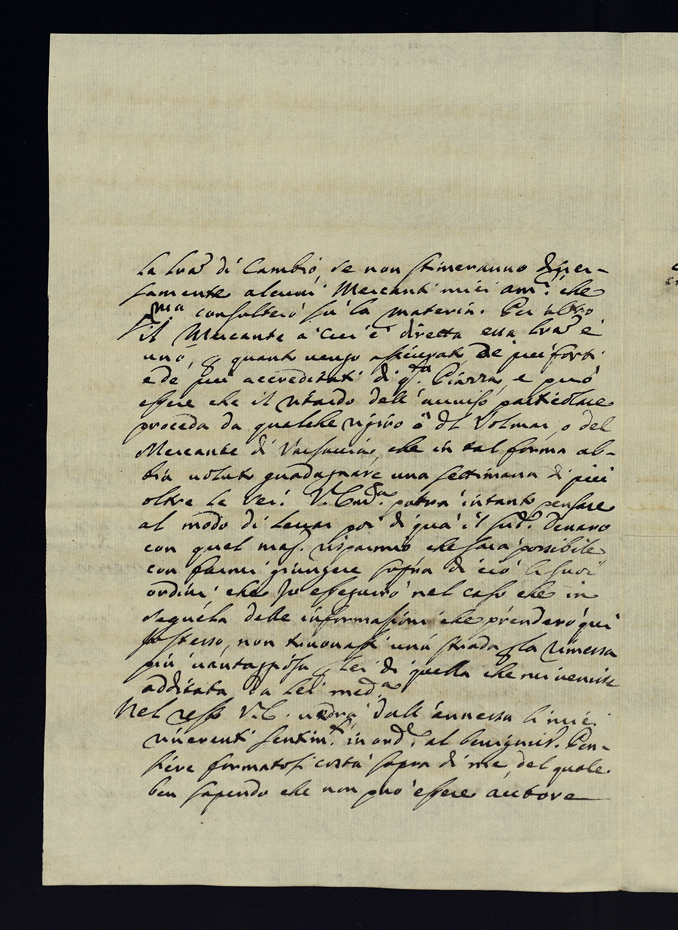 la Lra di Cambio, se non stimeranno diver-
samente alcuni Mercanti miei am.ci che
p.ma consulterò sù la materia. Per altro
il Mercante a' cui è diretta essa Lra è
uno, p quanto vengo assicurato de' piu forti
e de piu accreditati di q.sta Piazza, e può
essere che il ritardo dell'avviso particolare
proceda da qualche rigiro ò di Volmar, o del
Mercante di Varsavia, che in tal forma ab-
bia voluto guadagnare una settimana di più
oltre le sei. V. potrà intanto pensare
al modo di levar poi di quà il sud.o Denaro
con quel mag.r risparmio che sarà possibile
con farmi giungere sopra di ciò li suoi
ordini che Io esseguirò nel caso che in
sequela delle informazioni che prenderò qui
Io stesso, non trovassi una strada p la rimessa
più vantaggiosa p lei di quella che mi venisse
additata da lei med.a
Nel resto V. vedrà dall'annessa li miei
riverenti sentim.ti in ord.e al benignis.o Pen-
siere formatosi costà sopra di me, del quale
ben sapendo che non può essere autore